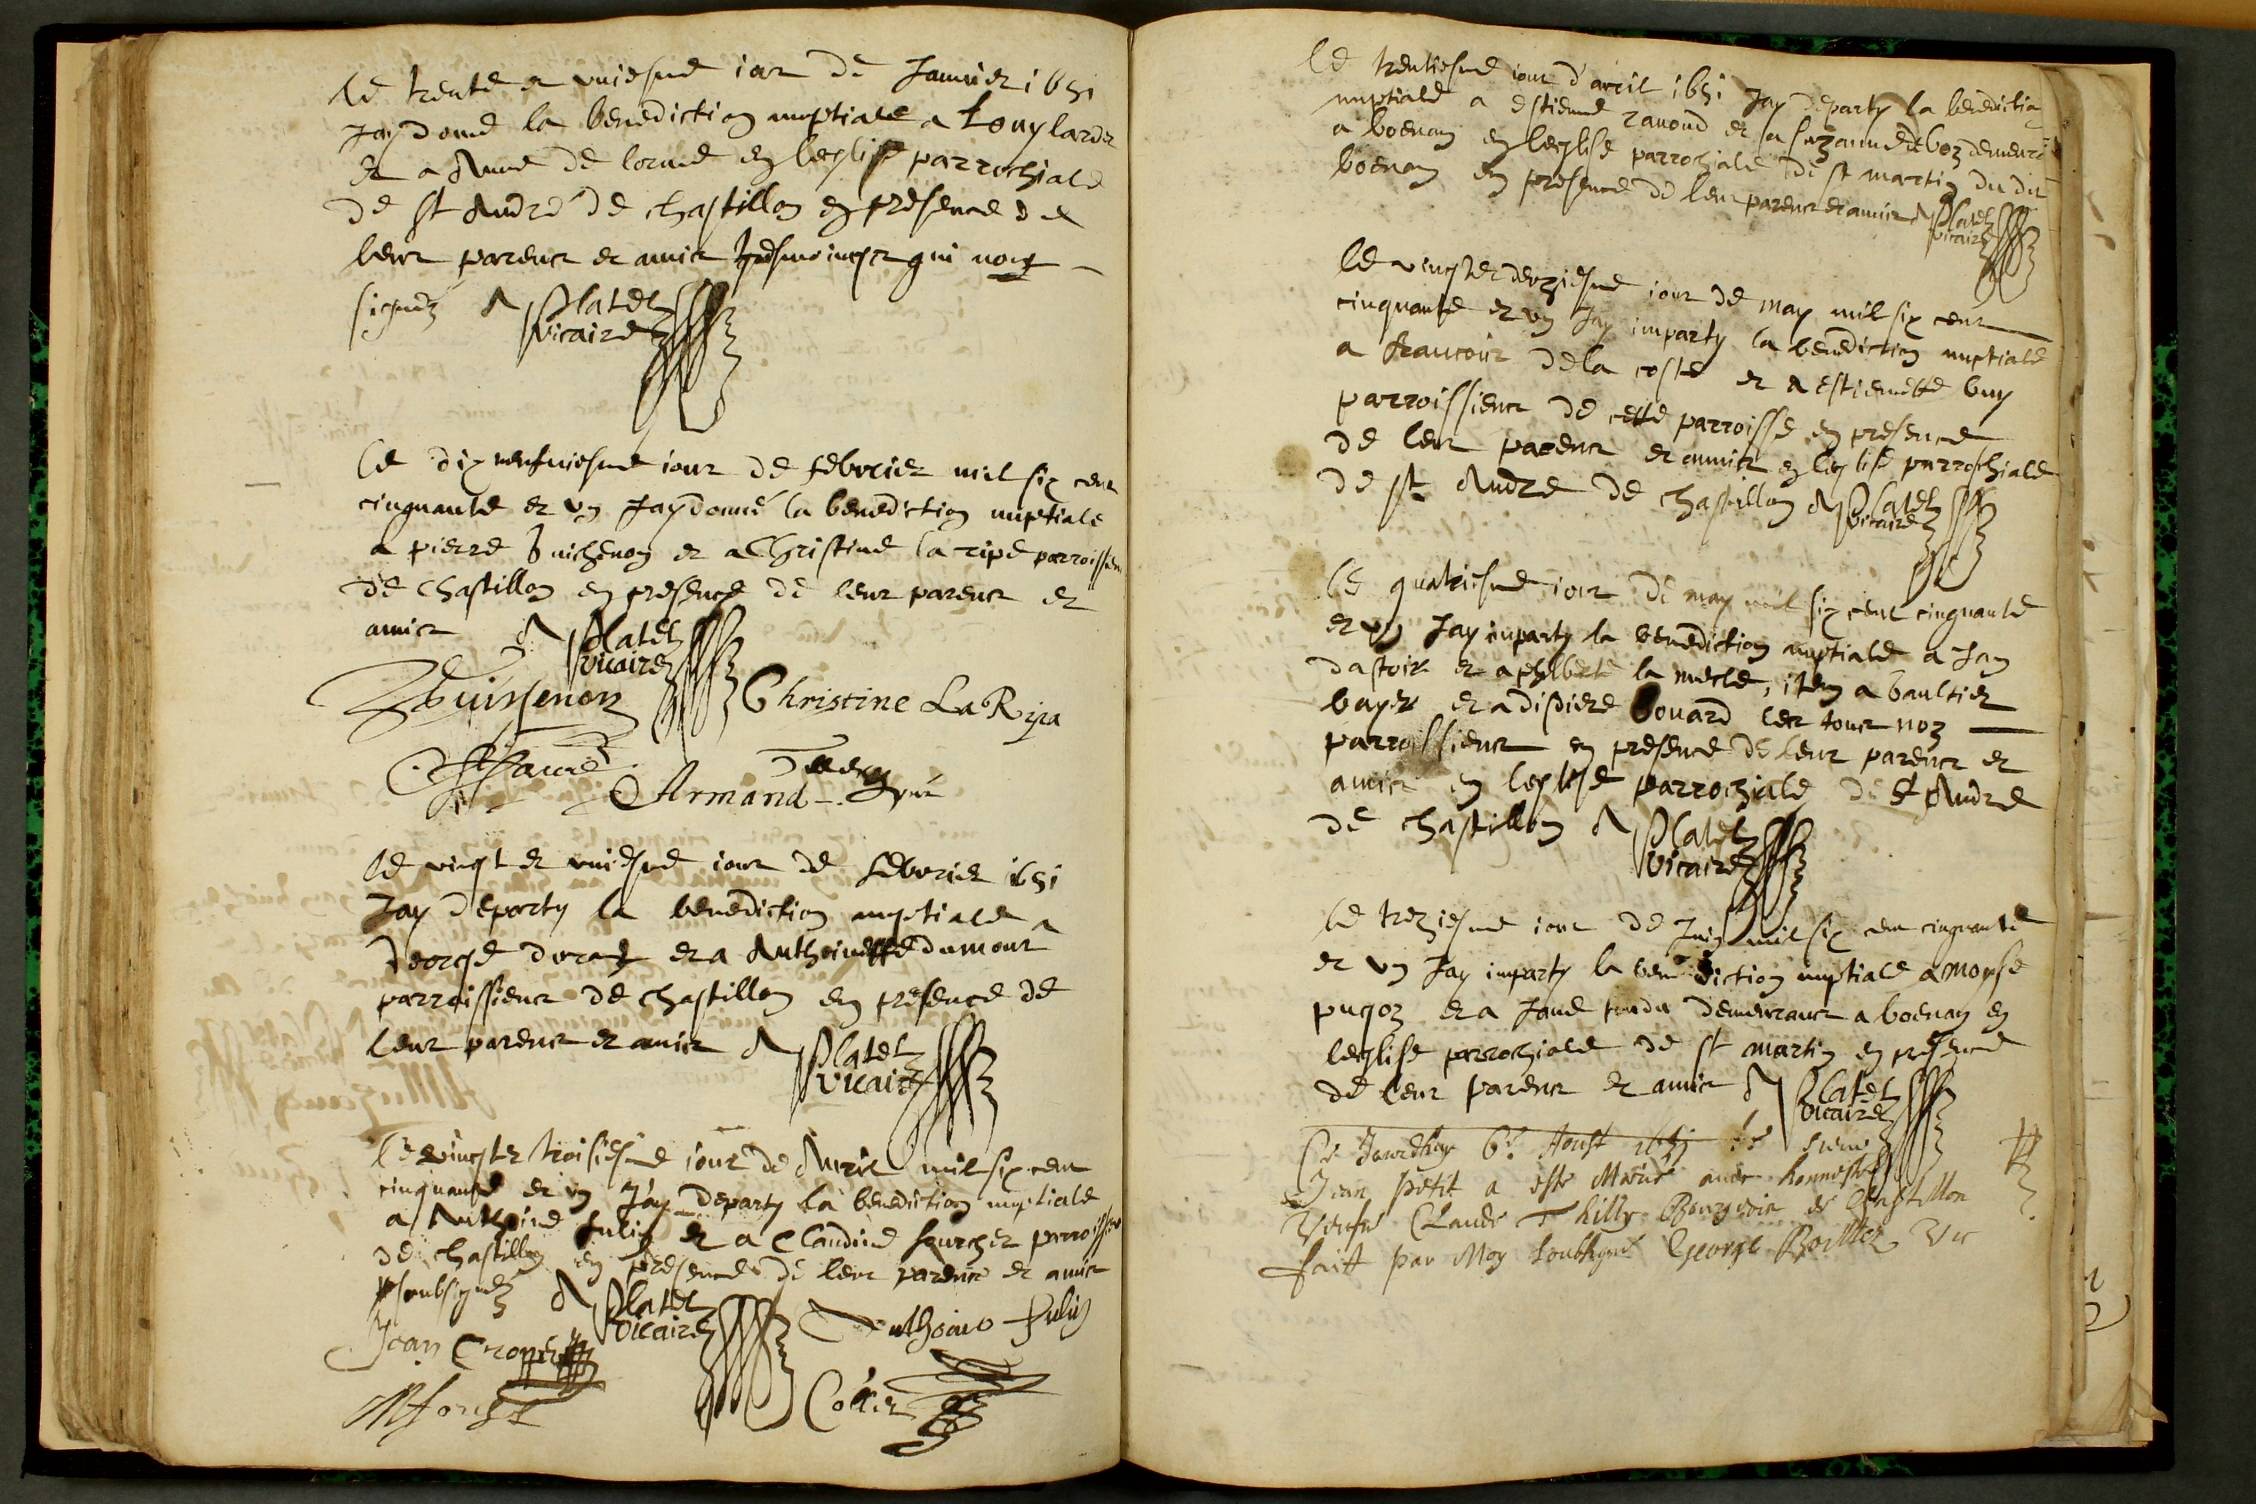 Le trente et uniesme iour de Januier 1651
Jay donné la benediction nuptiale a Louy larder
et a Anne de lorme en leglise parrochiale
de st André de chastillon en presence de
leur parens et amis tesmoings qui nont
signez A Platet
vicaire
Le dix neufuiesme iour de febvrier mil six cens
cinquante et un Jay donné la benediction nuptiale
a pierre Buichenon et a Christine la ripe parroissiens
de Chastillon en presence de leur parens et
amis A Platet
vicaire
Christine La Ripa
Faure
Armand
Le vingt et uniesme iour de febvrier 1651
Jay departy la benediction nuptiale a
George et a Anthoinette dumont
parroissiens de chastillon en presence de
leur parens et amis A Platet
vicaire
Le vingt et troisiesme iour de Avril mil six cens
cinquante et un Jay departy la benediction nuptiale
a Anthoine Julin et a Claudine fourcher parroissiens
de chastillon en presence de leur parens et amis
soubsignez A Platet
vicaire
Anthoine Julin
Jean
Le trentiesme iour d'avril 1651 Jay departy la benediction
nuptiale a estienne ravoud et a suzanne de boz demeurã
a boenay en leglise parrochiale de st martin du dit
boenay en presence de leur parens et amis A Platet
vicaire
Le vingt et deuziesme iour de may mil six cens
cinquante et un Jay imparty la benediction nuptiale
a francois de la coste et a estiennette buy
parroissiens de cette parroisse en presence
de leur parens et amis en leglise parrochiale
de st Andre de chastillon A Platet
vicaire
Le quatriesme iour de may mil six cens cinquante
et un Jay imparty la benediction nuptiale a Jan
et a philberte la merle, item a Gaultier
bayet et a didiere bouard les tous noz
parroissiens en presence de leur parens et
amis en leglise parrochiale de St Andre
de chastillon A Platet
vicaire
Le treziesme iour de Juin mil six cens cinquante
et un Jay imparty la benediction nuptiale a moyse
pugoz et a Jane demeurans a boenay en
leglise parrochiale de st martin en presence
de leur parens et amis A Platet
vicaire
Ce Jourdhuy 6e Aoust 1651
Jean petit a esté Marié avec honneste
Vefve Claude Thilly Bourgeois de Chastillon
fait par Moy soubsigné George Vic